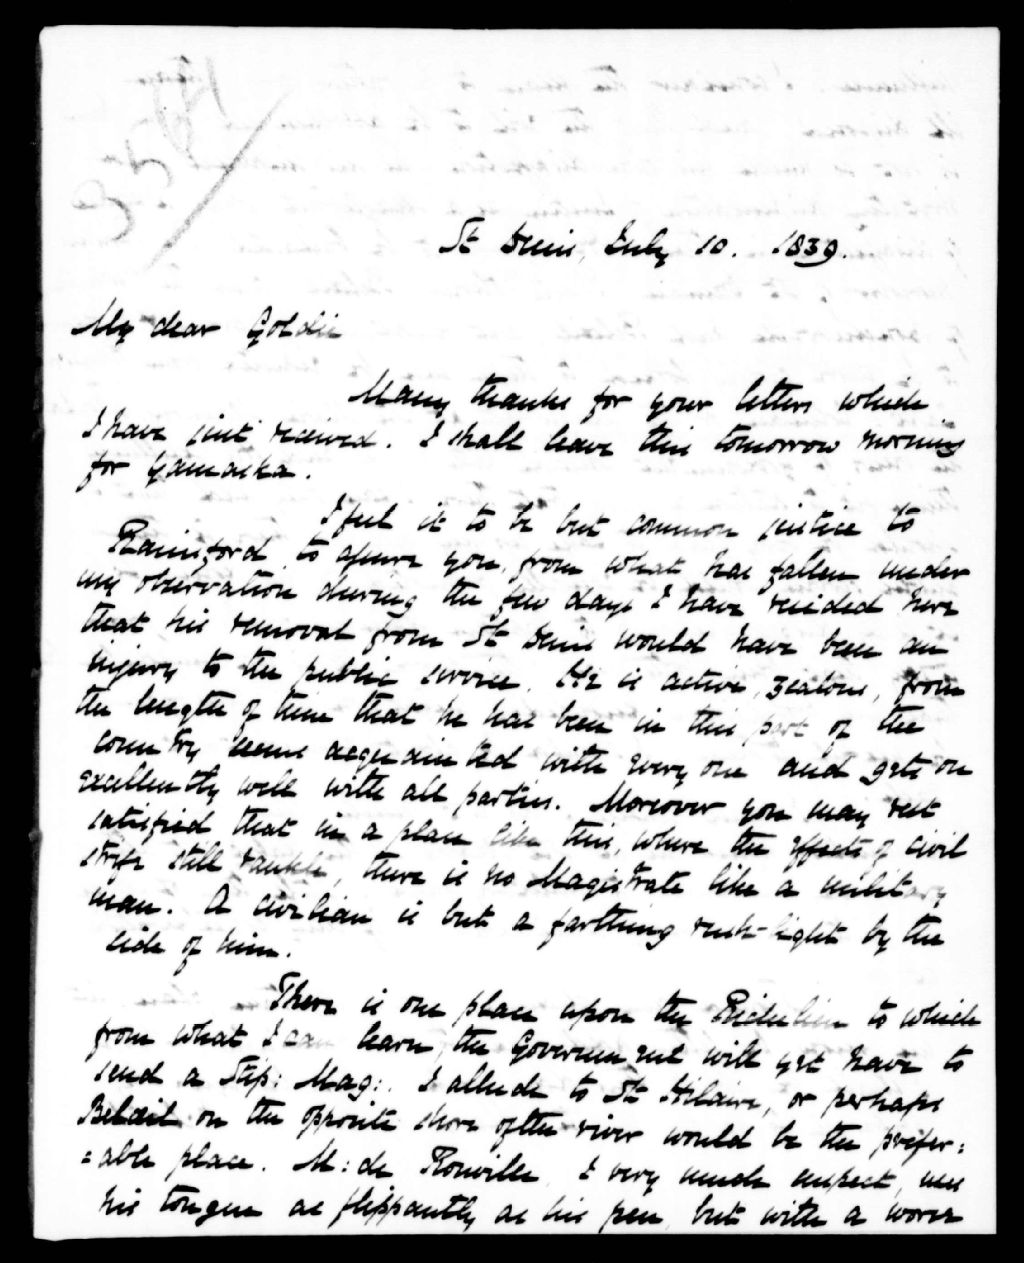 3564
St Denis, July 10. 1839.
My dear Goldie
Many thanks for your letters which
I have just received. I shall leave this tomorrow morning
for Yamaska.
I feel it to be but common justice to
Rainsford to assure you, from what has fallen under
my observation during the few days I have resided here
that his removal from St Denis would have been an
injury to the public service. He is active, zealous, from
the length of time that he has been in this part of the
country seems acquainted with every one and gets on
excellently well with all parties. Moreover you may rest
satisfied that in a place like this, where the effects of civil
strife still rankle, there is no Magistrate like a military
man. A civilian is but a farthing rush-light by the
side of him.
There is one place upon the Richelieu to which
from what I can learn, the Government will yet have to
send a Stip: Mag:. I allude to St Hilaire, or perhaps
Belœil on the opposite shore of the river would be the prefer:
:able place. M: de Rouville I very much suspect, uses
his tongue as flippantly as his pen, but with a worse